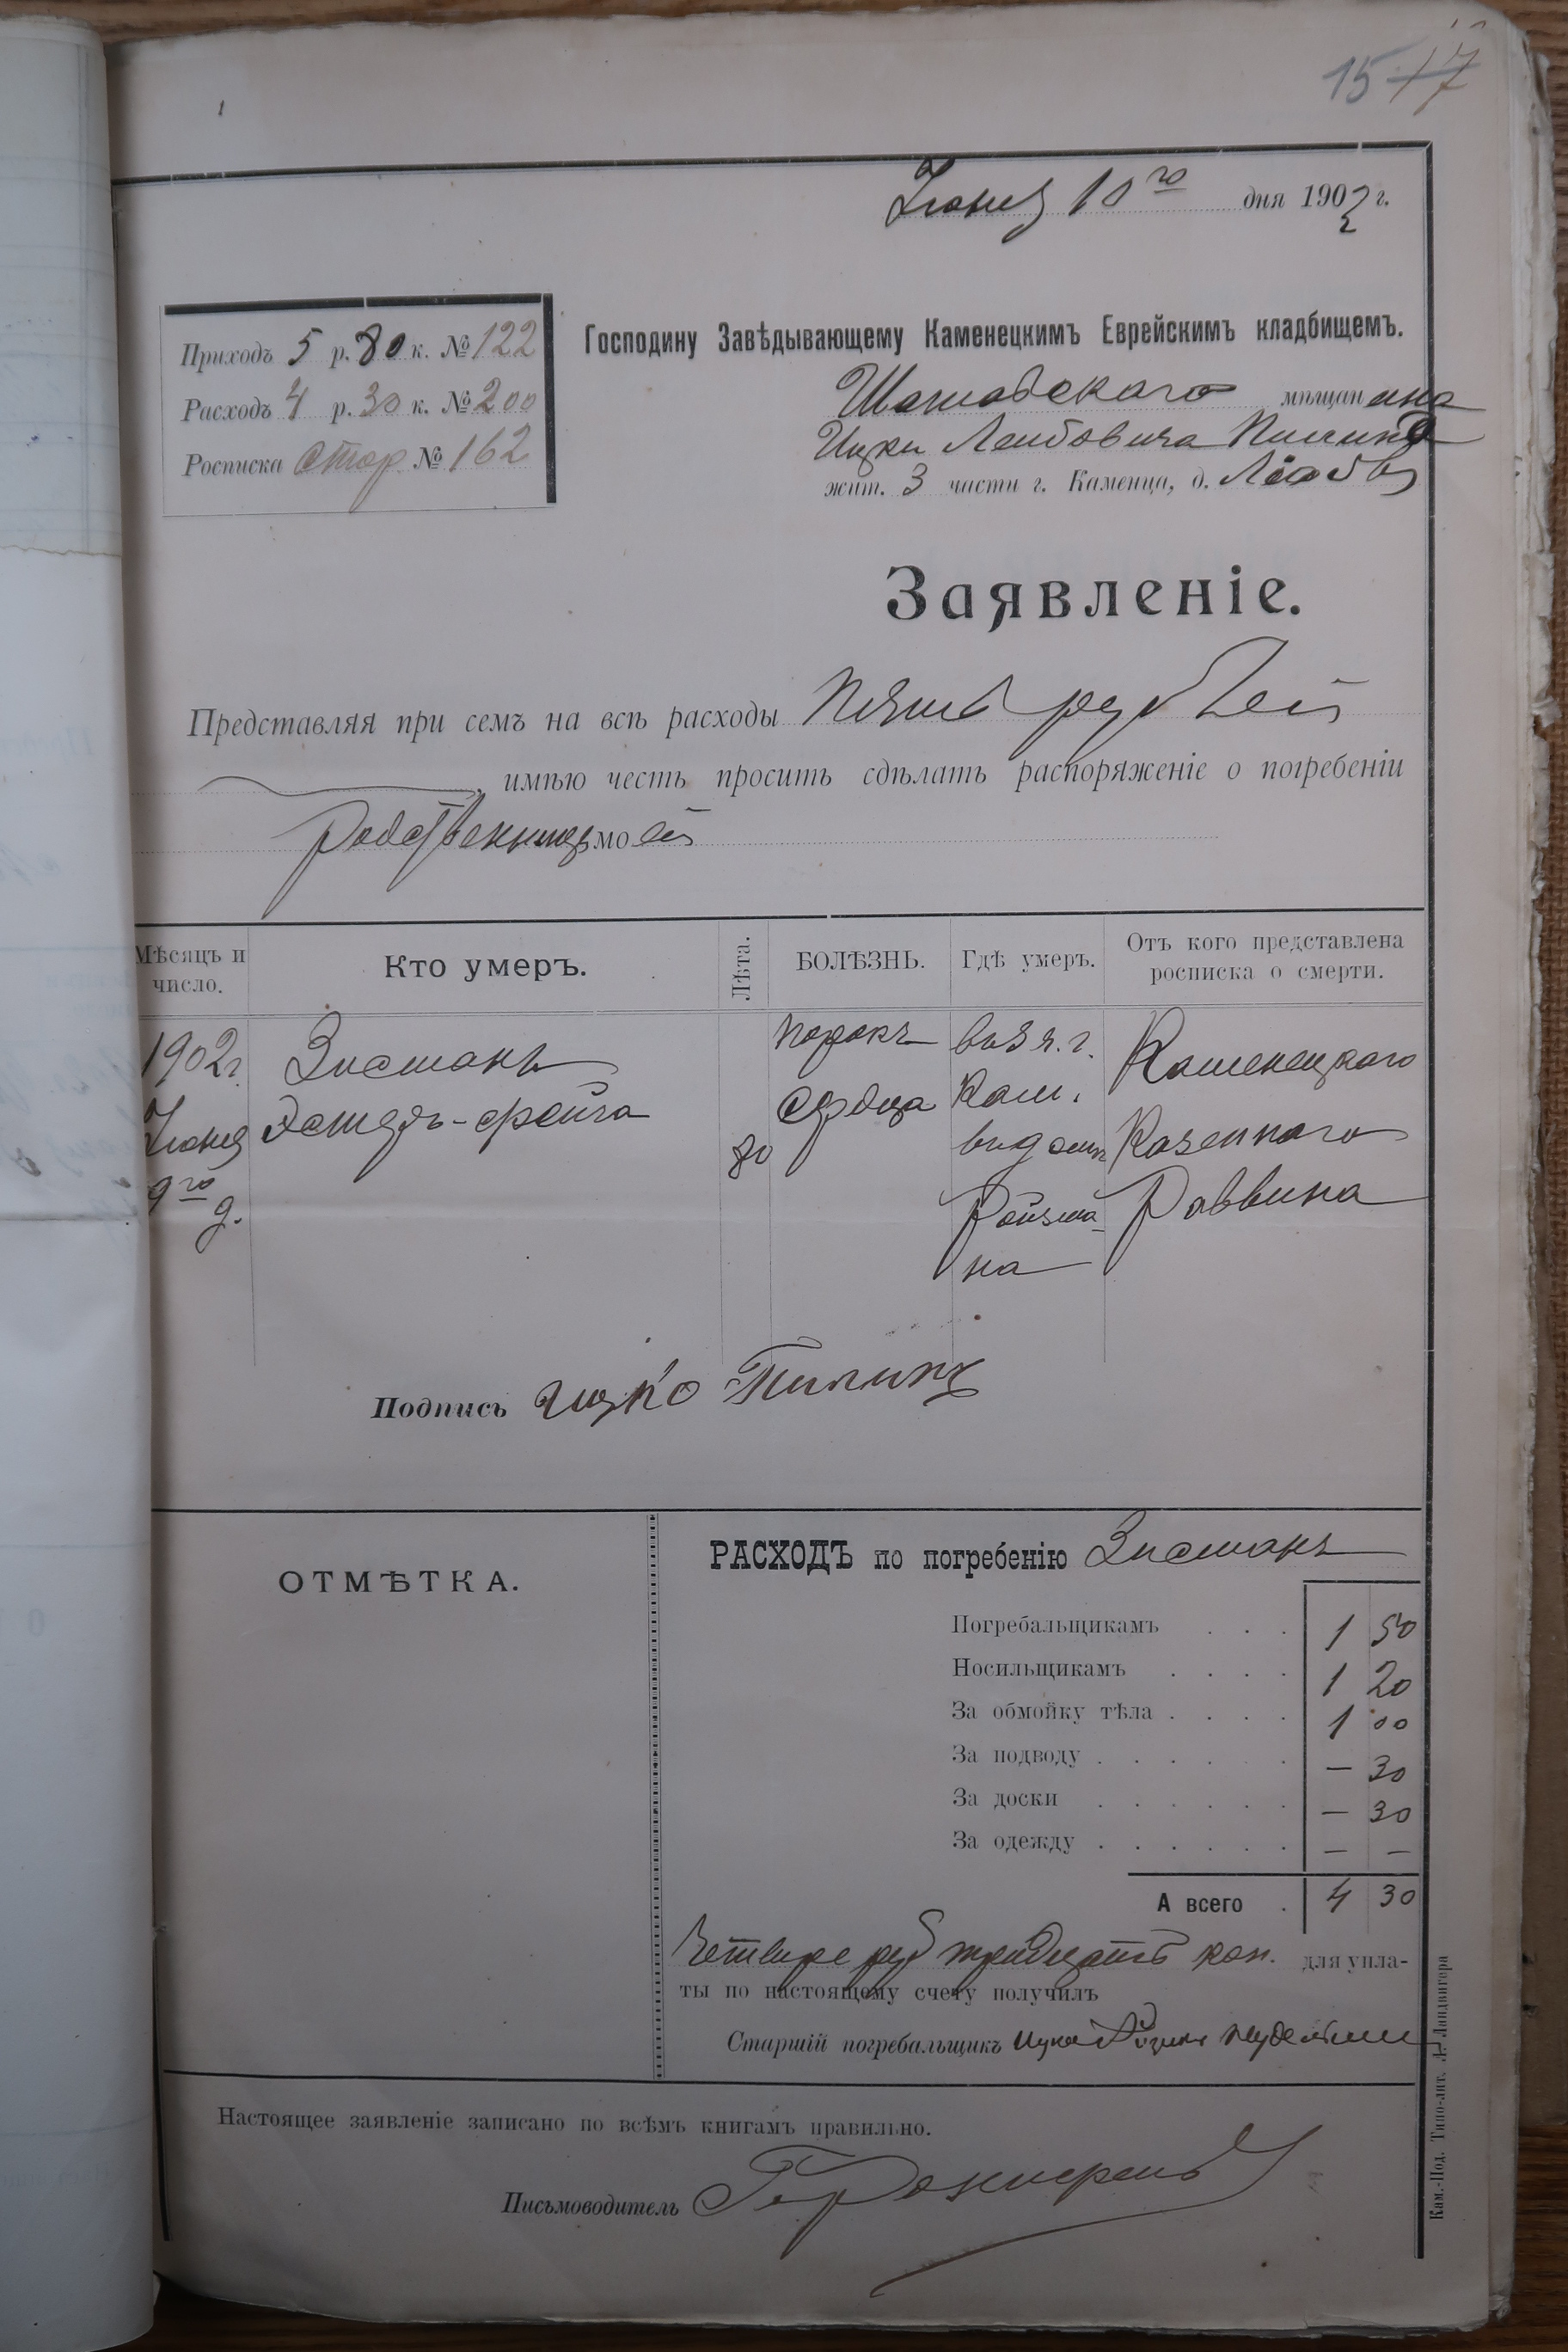 15 17
Июня 10го дня 1902 г.
Приходъ 5 р. 80 к. № 122
Расходъ 4 р. 30 к. № 200
Росписка стар № 162
Господину Завѣдывающему Каменецкимъ Еврейскимъ кладбищемъ.
мѣщанина
Ицки Лейбовича
жит. 3 части г. Каменца, д.
Заявленіе.
Представляя при семъ на всѣ расходы Пять рублей
имѣю честь просить сдѣлать распоряженіе о погребеніи
родственницы моей
Мѣсяцъ и число.
Кто умеръ.
Лѣта.
БОЛѢЗНЬ.
Гдѣ умеръ.
Отъ кого представлена росписка о смерти.
1902 г.
Июня
9го д.
Зисманъ
Эстеръ-Фейга
80
порокъ
сердца
въ 3 ч. г.
Кам.
въ домѣ
Ройзма-
на
Каменецкаго
Казеннаго
Раввина
Подпись Ицко
ОТМѢТКА.
РАСХОДЪ по погребенію Зисманъ
Погребальщикамъ . . . 1 50
Носильщикамъ . . . . 1 20
За обмойку тѣла . . . . 1 00
За подводу . . . . . . — 30
За доски . . . . . . — 30
За одежду . . . . . . — —
А всего . 4 30
Четыре руб тридцать коп. для упла-
ты по настоящему счету получилъ
Старшій погребальщикъ
Настоящее заявленіе записано по всѣмъ книгамъ правильно.
Письмоводитель
Кам.-Под. Типо-лит. Л. Ландвигера